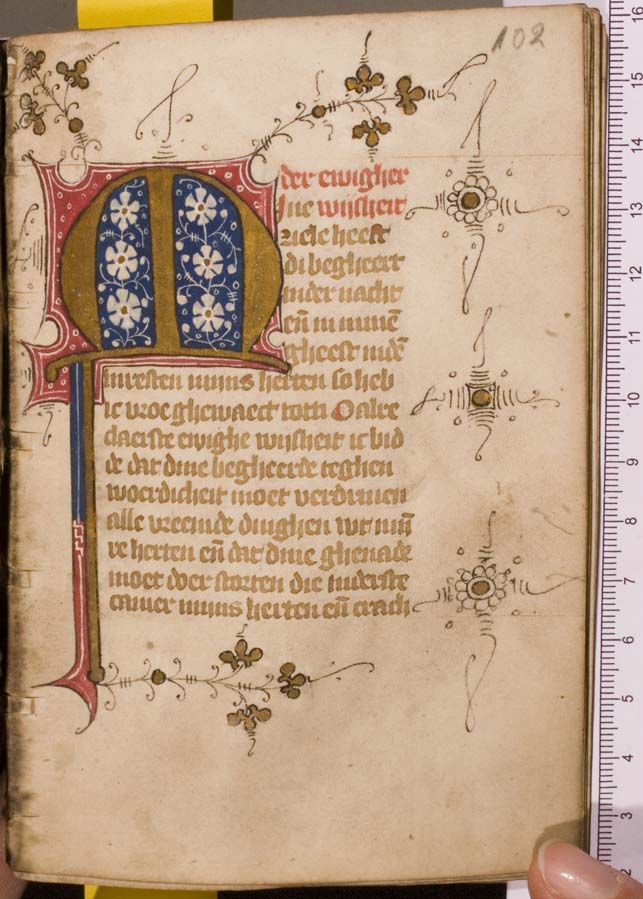 102
der ewigher
M ine wijsheit
ziele heeft
di begheert
inder nacht
eñ in minē
gheest indē
inresten mijns herten so heb
ic vroe ghewaect totti O alre
claerste ewighe wijsheit ic bid
de dat dine begheerde teghen
woerdicheit moet verdriuen
alle vreemde dinghen wt mijn
re herten eñ dat dine ghenade
moet doer storten die inderste
camer mijns herten eñ crach
16
15
14
13
12
11
10
9
8
7
6
5
4
3
2